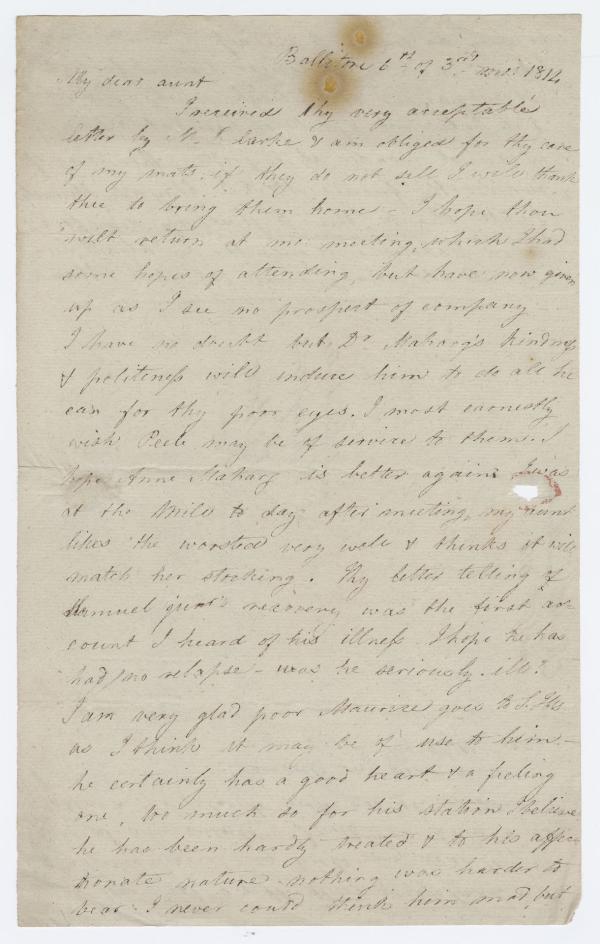 Ballitore 6th of 3rd mo: 1814
My dear aunt
I received thy very acceptable
letter by M. Clarke & am obliged for thy care
of my mats, if they do not sell I will thank
thee to bring them home – I hope thou
wilt return at mo: meeting, which I had
some hopes of attending, but have now given
up as I see no prospect of company
I have no doubt but Dr Maharg's kindness
& politeness will induce him to do all he
can for thy poor eyes. I most earnestly
wish Peele may be of service to them. I
hope Anne Maharg is better again. I was
at the Mill to day after meeting, my aunt
likes the worsted very well & thinks it will
match her stocking. Thy letter telling of
Samuel recovery was the first ac=
count I heard of his illness. I hope he has
had no relapse – was he seriously ill?
I am very glad poor Maurice goes to S.
as I think it may be of use to him –
he certainly has a good heart & a feeling
one, too much so for his station I believe
he has been hardly treated & to his affec
tionate nature nothing was harder to
bear. I never could think him mad, but